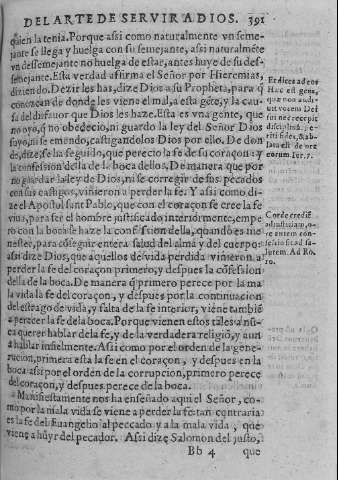 DEL ARTE DE SERVIR A DIOS. 391
quien la tenia. Porque assi como naturalmente vn seme-
jante se llega y huelga con su semejante, assi naturalmẽte
vn dessemejante no huelga de estar, antes huye de su des-
semejante. Esta verdad affirma el Señor por Hieremias,
diziendo. Dezir les has, dize Dios a su Propheta, para q̃
conozcan de donde les viene el mal, a esta gẽte, y la cau-
sa del disfauor que Dios les haze. Esta es vna gente, que
no oyo, ni obedecio, ni guardo la ley del Señor Dios
suyo, ni se emendo, castigandolos Dios por ello. De don
de, dize, se ha seguido, que perecio la fe de su coraçon: y la
confession della de la boca dellos. De manera que por
no guardar la ley de Dios, ni se corregir de sus pecados
con sus castigos, vinieron a perder la fe. Y assi como di-
ze el Apostol sant Pablo, que con el coraçon se cree la fe
viua, para ser el hombre justificado interiormente, empe
ro con la boca se haze la confession della, quando es me
nester, para cõseguir entera salud del alma y del cuerpo:
assi dize Dios, que aquellos de vida perdida vinieron a
perder la fe del coraçon primero, y despues la cõfession
della de la boca. De manera q̃ primero perece por la ma
la vida la fe del coraçon, y despues por la continuacion
del estrago de vida, y falta de la fe interior, viene tambiẽ
a perecer la fe de la boca. Porque vienen estos tales a nũ-
ca querer hablar de la fe, y de la verdadera religiõ, y aun
a hablar infielmente. Assi como por el orden de la gene-
racion, primera esta la fe en el coraçon, y despues en la
boca: assi por el orden de la corrupcion, primero perece
del coraçon, y despues perece de la boca.
Manifiestamente nos ha enseñado aqui el Señor, co-
mo por la mala vida se viene a perder la fe: tan contraria
es la fe del Euangelio al peccado y a la mala vida, que
viene a hũyr del pecador. Assi dize Salomon del justo,
Bb 4 que
Et dices ad eos
Hæc est gens,
quæ non audi
uit vocem Dei
sui nec recepit
disciplinã, pe-
riit fides, & ab-
lata est de ore
eorum. Ier. 7.
Corde credit
ad iustitiam, o-
re autem con-
fessio fit ad sa-
lutem. Ad Ro.
10.